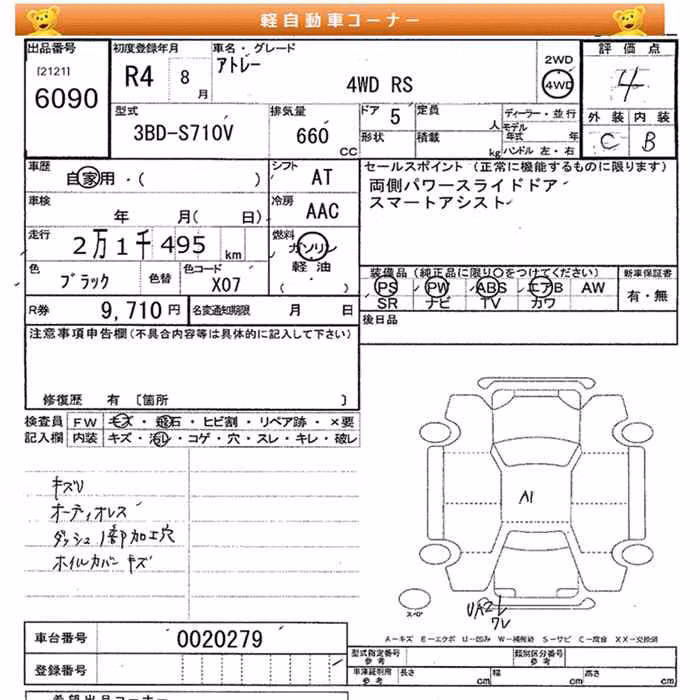 軽自動車コーナー
出品番号 初度登録年月 車名・グレード 評価点
[2121] 6090 R4 8月 アトレー 4WD RS 2WD 4WD 4
型式 排気量 ドア 5 定員 人 ディーラー・並行
3BD-S710V 660 CC 形状 積載 kg モデル年式 年 ハンドル 左・右
外装 内装
C B
車歴 自家用・( ) シフト AT
セールスポイント (正常に機能するものに限ります)
両側パワースライドドア
スマートアシスト
車検 年 月( 日) 冷房 AAC
走行 2万1千495 km 燃料 ガソリン 軽油 ( )
色 ブラック 色替 色コード X07
装備品 (純正品に限り〇をつけてください) 新車保証書
PS PW ABS エアB AW 有・無
SR ナビ TV カワ
R券 9,710円 名変通知期限 月 日
後日品
注意事項申告欄(不具合内容等は具体的に記入して下さい)
修復歴 有 [箇所 ]
検査員 FW キズ・飛石・ヒビ割・リペア跡・×要
記入欄 内装 キズ・汚レ・コゲ・穴・スレ・キレ・破レ
キズU
オーディオレス
ダッシュ1部加工穴
ホイルカバーキズ
A1
スペア
UA2
A-キズ E-エクボ U-凹み W-補修跡 S-サビ C-腐食 XX-交換済
車台番号 0020279
登録番号
型式指定番号 参考 類別区分番号 参考
車庫証明用 参考 長さ cm 幅 cm 高さ cm
希望出品コーナー